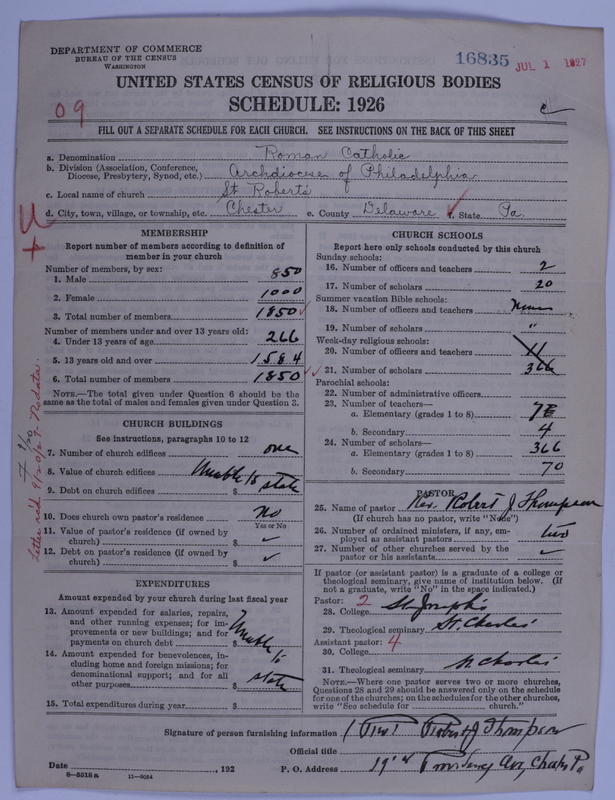 DEPARTMENT OF COMMERCE
BUREAU OF THE CENSUS
WASHINGTON
16835 JUL 1 1927
UNITED STATES CENSUS OF RELIGIOUS BODIES
SCHEDULE: 1926
09
FILL OUT A SEPARATE SCHEDULE FOR EACH CHURCH. SEE INSTRUCTIONS ON THE BACK OF THIS SHEET
a. Denomination Roman Catholic
b. Division (Association, Conference, Diocese, Presbytery, Synod, etc.) Archdiocese of Philadelphia
c. Local name of church St Roberts
d. City, town, village, or township, etc. Chester e. County Delaware f. State Pa.
MEMBERSHIP
Report number of members according to definition of
member in your church
Number of members, by sex:
1. Male 850
2. Female 1000
3. Total number of members 1850
Number of members under and over 13 years old:
4. Under 13 years of age 266
5. 13 years old and over 1584
6. Total number of members 1850
NOTE.—The total given under Question 6 should be the
same as the total of males and females given under Question 3.
CHURCH BUILDINGS
See instructions, paragraphs 10 to 12
7. Number of church edifices one
8. Value of church edifices Unable to
9. Debt on church edifices $ state
10. Does church own pastor's residence No
Yes or No
11. Value of pastor's residence (if owned by
church) $ ✓
12. Debt on pastor's residence (if owned by
church) $ ✓
EXPENDITURES
Amount expended by your church during last fiscal year
13. Amount expended for salaries, repairs,
and other running expenses; for im-
provements or new buildings; and for
payments on church debt $ Unable
14. Amount expended for benevolences, in-
cluding home and foreign missions; for
denominational support; and for all
other purposes $ to state
15. Total expenditures during year $
CHURCH SCHOOLS
Report here only schools conducted by this church
Sunday schools:
16. Number of officers and teachers 2
17. Number of scholars 20
Summer vacation Bible schools:
18. Number of officers and teachers None
19. Number of scholars "
Week-day religious schools:
20. Number of officers and teachers 11
21. Number of scholars 366
Parochial schools:
22. Number of administrative officers
23. Number of teachers—
a. Elementary (grades 1 to 8) 7
b. Secondary 4
24. Number of scholars—
a. Elementary (grades 1 to 8) 366
b. Secondary 70
PASTOR
25. Name of pastor Rev. Robert J Thompson
(If church has no pastor, write "None")
26. Number of ordained ministers, if any, em-
ployed as assistant pastors two
27. Number of other churches served by the
pastor or his assistants ✓
If pastor (or assistant pastor) is a graduate of a college or
theological seminary, give name of institution below. (If
not a graduate, write "No" in the space indicated.)
Pastor: 2
28. College St Joseph's
29. Theological seminary St. Charles
Assistant pastor: 4
30. College
31. Theological seminary St Charles
NOTE.—Where one pastor serves two or more churches,
Questions 28 and 29 should be answered only on the schedule
for one of the churches; on the schedules for the other churches,
write "See schedule for church."
Signature of person furnishing information Robert J Thompson
Official title
Date , 192 P. O. Address 19th Providence Av, Chester Pa
8-5518a 11-9054